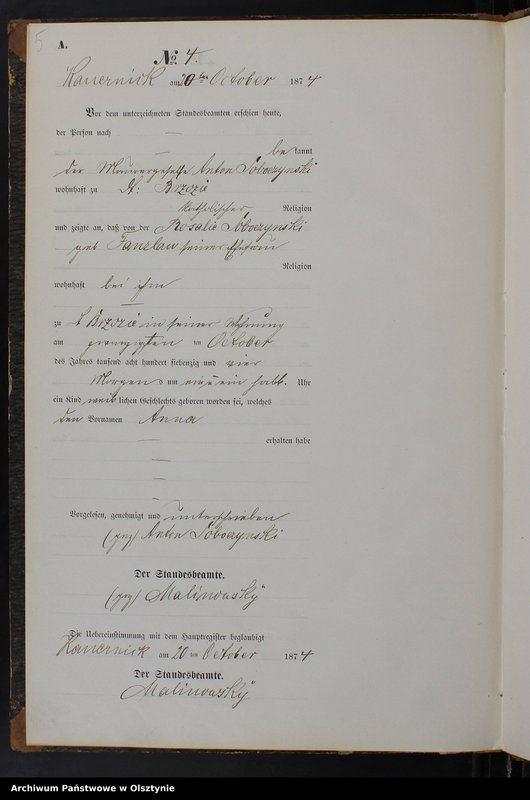 5
A.
No. 4.
Kauernick am 20ten October 1874
Vor dem unterzeichneten Standesbeamten erschien heute,
der Person nach —
— bekannt
der Maurergeselle Anton Soboczynski
wohnhaft zu N: Brzozie
katholischer Religion
und zeigte an, daß von der Rosalie Soboczynski
geb Fanslau seiner Ehefrau
Religion
wohnhaft bei ihm
—
zu Brzozie in seiner Wohnung
am zwanzigten ten October
des Jahres tausend acht hundert siebenzig und vier
Morgens um ein halb Uhr
ein Kind weiblichen Geschlechts geboren worden sei, welches
den Vornamen Anna
— erhalten habe
—
—
—
Vorgelesen, genehmigt und unterschrieben
(gez) Anton Soboczynski
Der Standesbeamte.
(gez) Malinowsky
Die Uebereinstimmung mit dem Hauptregister beglaubigt
Kauernick am 20 ten October 1874
Der Standesbeamte.
Malinowsky
Archiwum Państwowe w Olsztynie